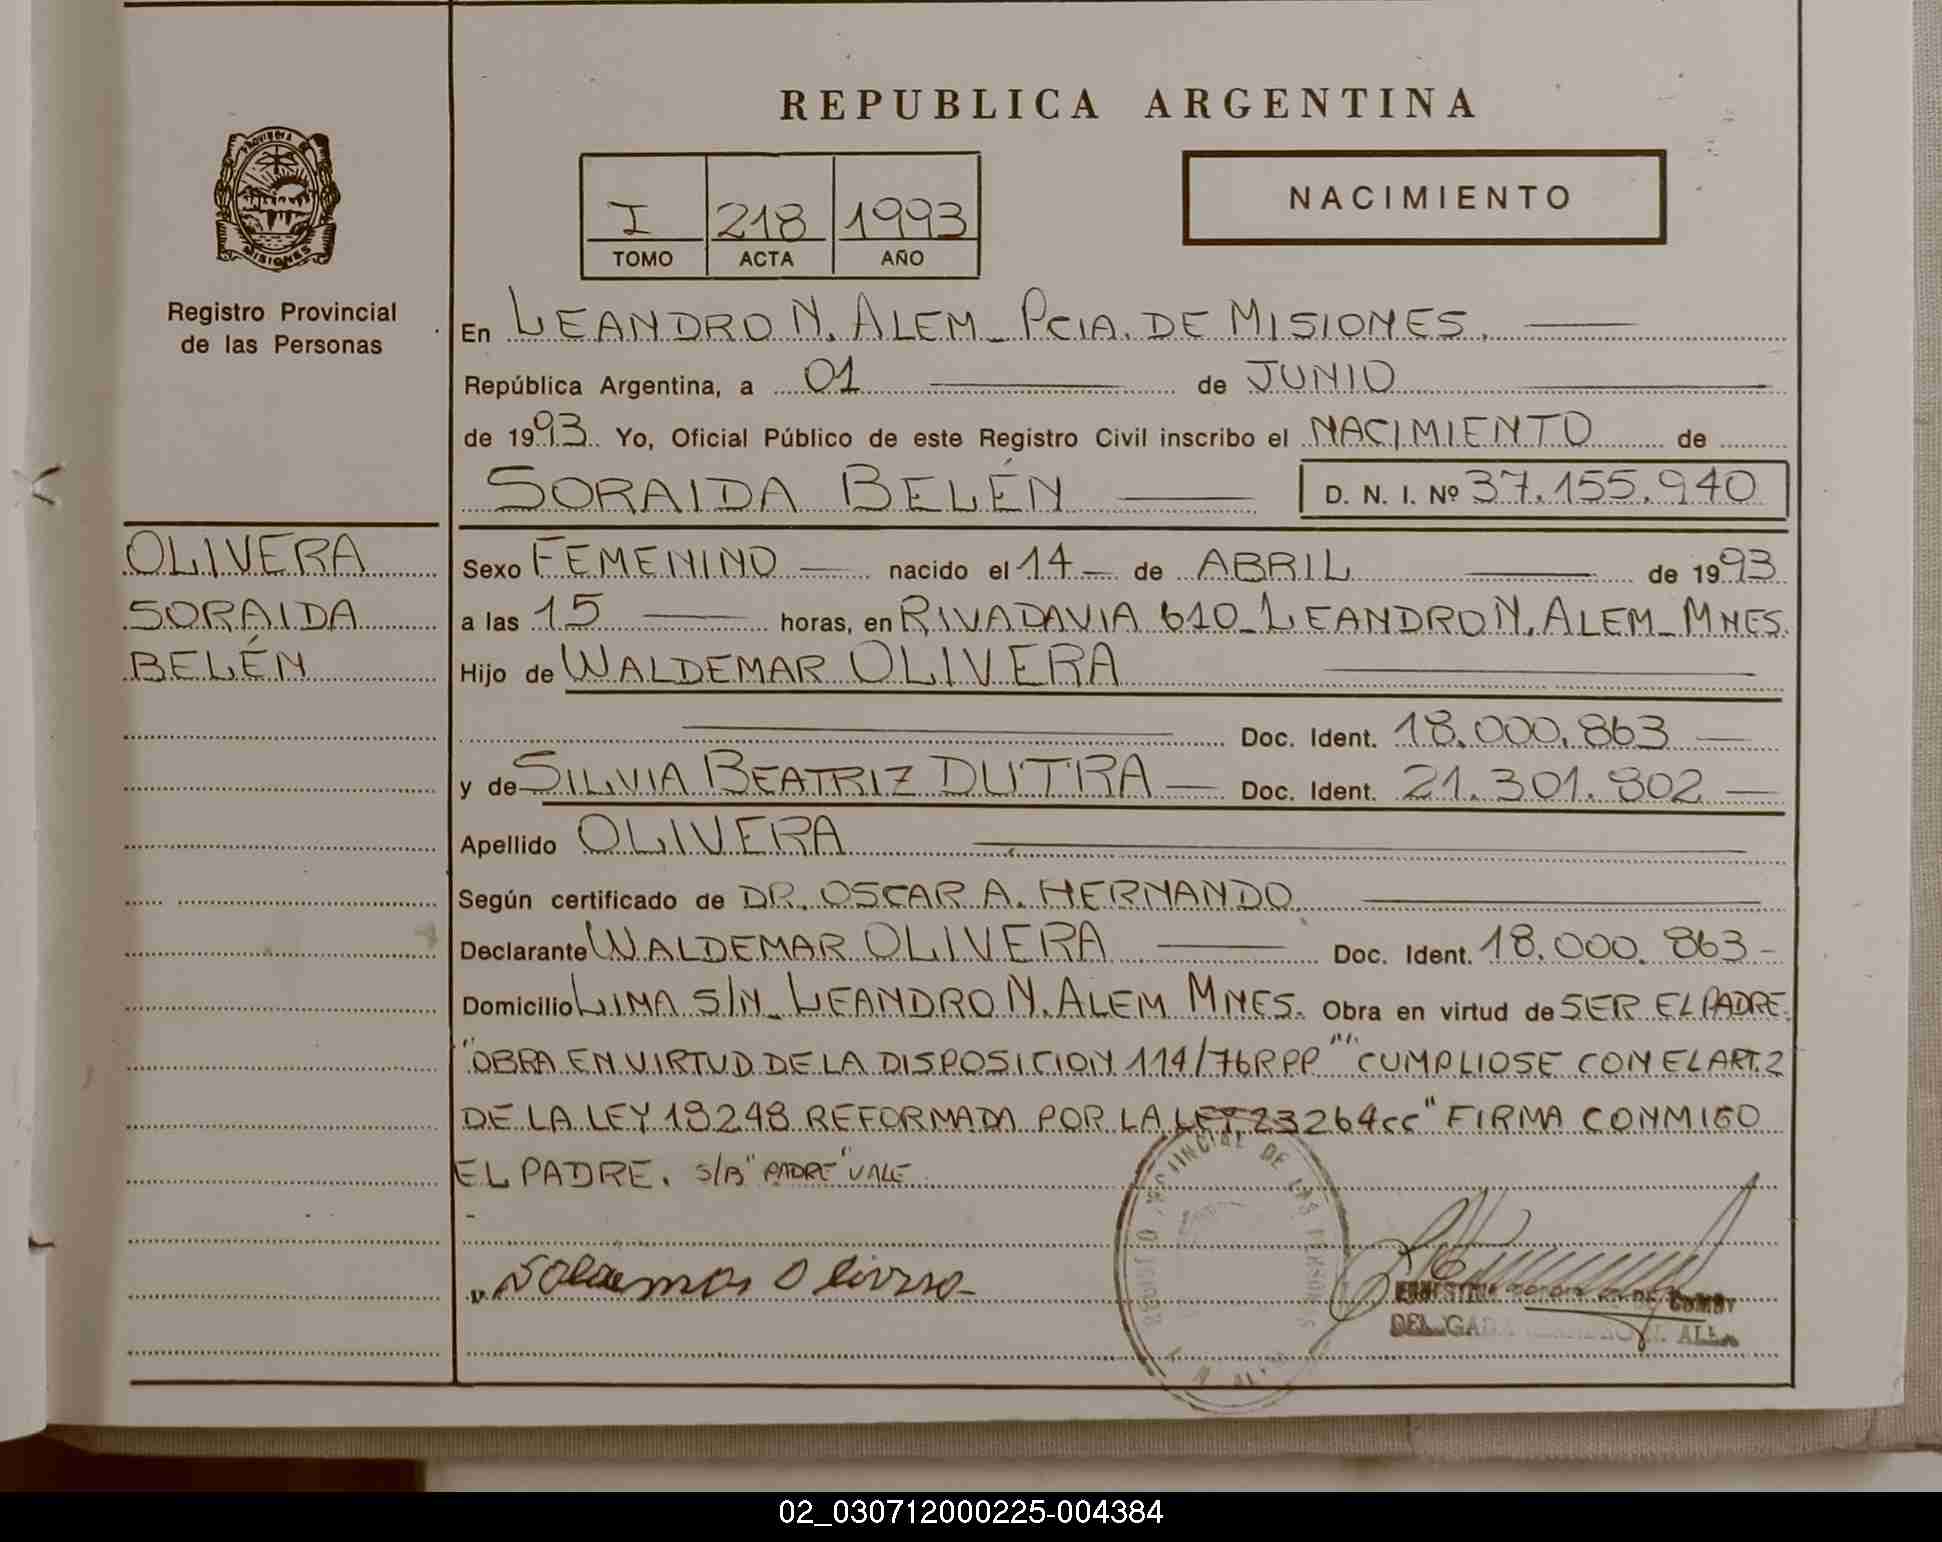 REPUBLICA ARGENTINA
PROVINCIA DE
MISIONES
Registro Provincial
de las Personas
I 218 1993
TOMO ACTA AÑO
NACIMIENTO
En LEANDRO N. ALEM - PCIA. DE MISIONES.
República Argentina, a 01 de JUNIO
de 1993 Yo, Oficial Público de este Registro Civil inscribo el NACIMIENTO de
SORAIDA BELÉN D. N. I. Nº 37.155.940
OLIVERA
SORAIDA
BELÉN
Sexo FEMENINO nacido el 14 de ABRIL de 1993
a las 15 horas, en RIVADAVIA 610 - LEANDRO N. ALEM - MNES.
Hijo de WALDEMAR OLIVERA
Doc. Ident. 18.000.863
y de SILVIA BEATRIZ DUTRA Doc. Ident. 21.301.802
Apellido OLIVERA
Según certificado de DR. OSCAR A. HERNANDO
Declarante WALDEMAR OLIVERA Doc. Ident. 18.000.863
Domicilio LIMA S/N - LEANDRO N. ALEM MNES. Obra en virtud de SER EL PADRE.
"OBRA EN VIRTUD DE LA DISPOSICION 114/76 RPP" "CUMPLIOSE CON EL ART. 2
DE LA LEY 18248 REFORMADA POR LA LEY 23264 cc" FIRMA CONMIGO
EL PADRE. S/B "PADRE" VALE
DE LAS
Olivera
02_030712000225-004384